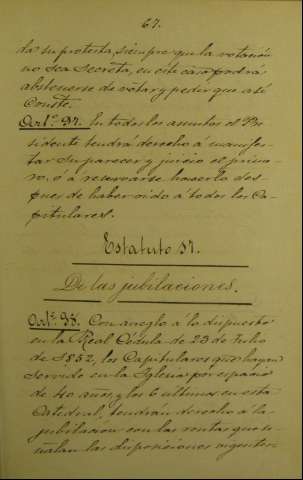 67.
da su protesta, siempre que la votación
no sea secreta, en este caso podrá
abstenerse de votar y pedir que así
Conste.
Artº. 97. En todos los asuntos el Pre
sidente tendrá derecho á manifes-
tar su parecer y juicio el prime-
ro, ó á reservarse hacerlo des-
pues de haber oido á todos los Ca-
pitulares.
Estatuto 51.
De las jubilaciones.
Artº. 98. Con arreglo á lo dispuesto
en la Real Cédula de 23 de Julio
de 1852, los Capitulares que hayan
servido en la Iglesia por espacio
de 40 años, y los 6 ultimos en esta
Catedral, tendrán derecho á la
jubilación con las rentas que se-
ñalan las disposiciones vigentes.